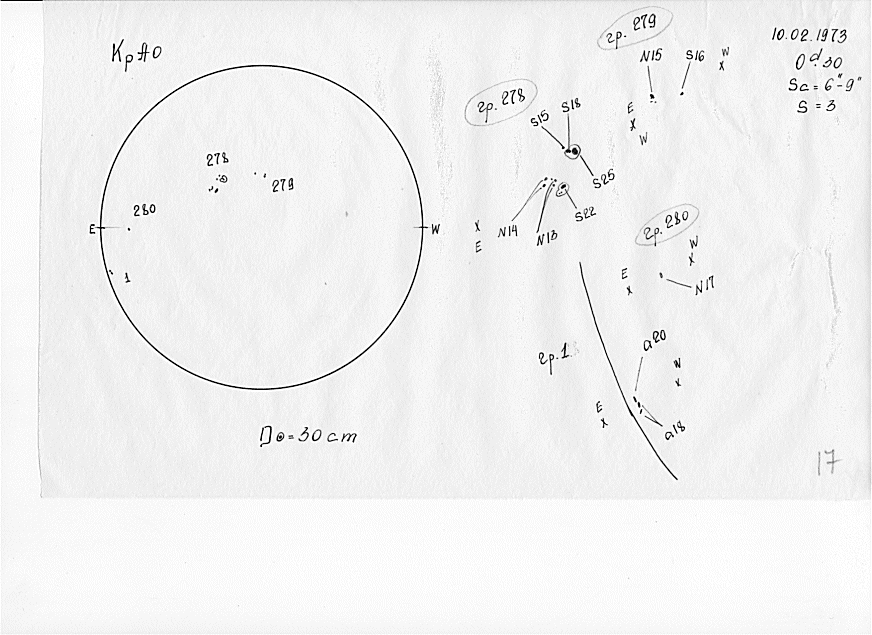 КрАО
E
W
278
279
280
1
D⊙=30 cm
гр. 279
N15 S16 W
x
E
x
W
гр. 278
S15 S18
S25
S22
N14 N13
x
E
гр. 280
W
x
E
x
N17
гр. 1
a20
W
x
E
x
a18
10.02.1973
0ᵈ.30
Sc = 6"-9"
S = 3
17